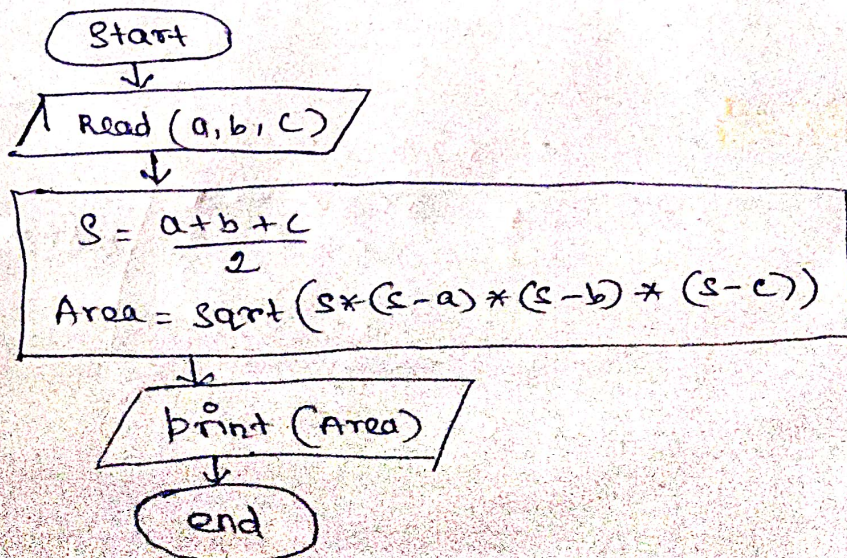 Start
Read (a, b, c)
S = a+b+c
2
Area = sqrt (S*(S-a) * (S-b) * (S-c))
print (Area)
end